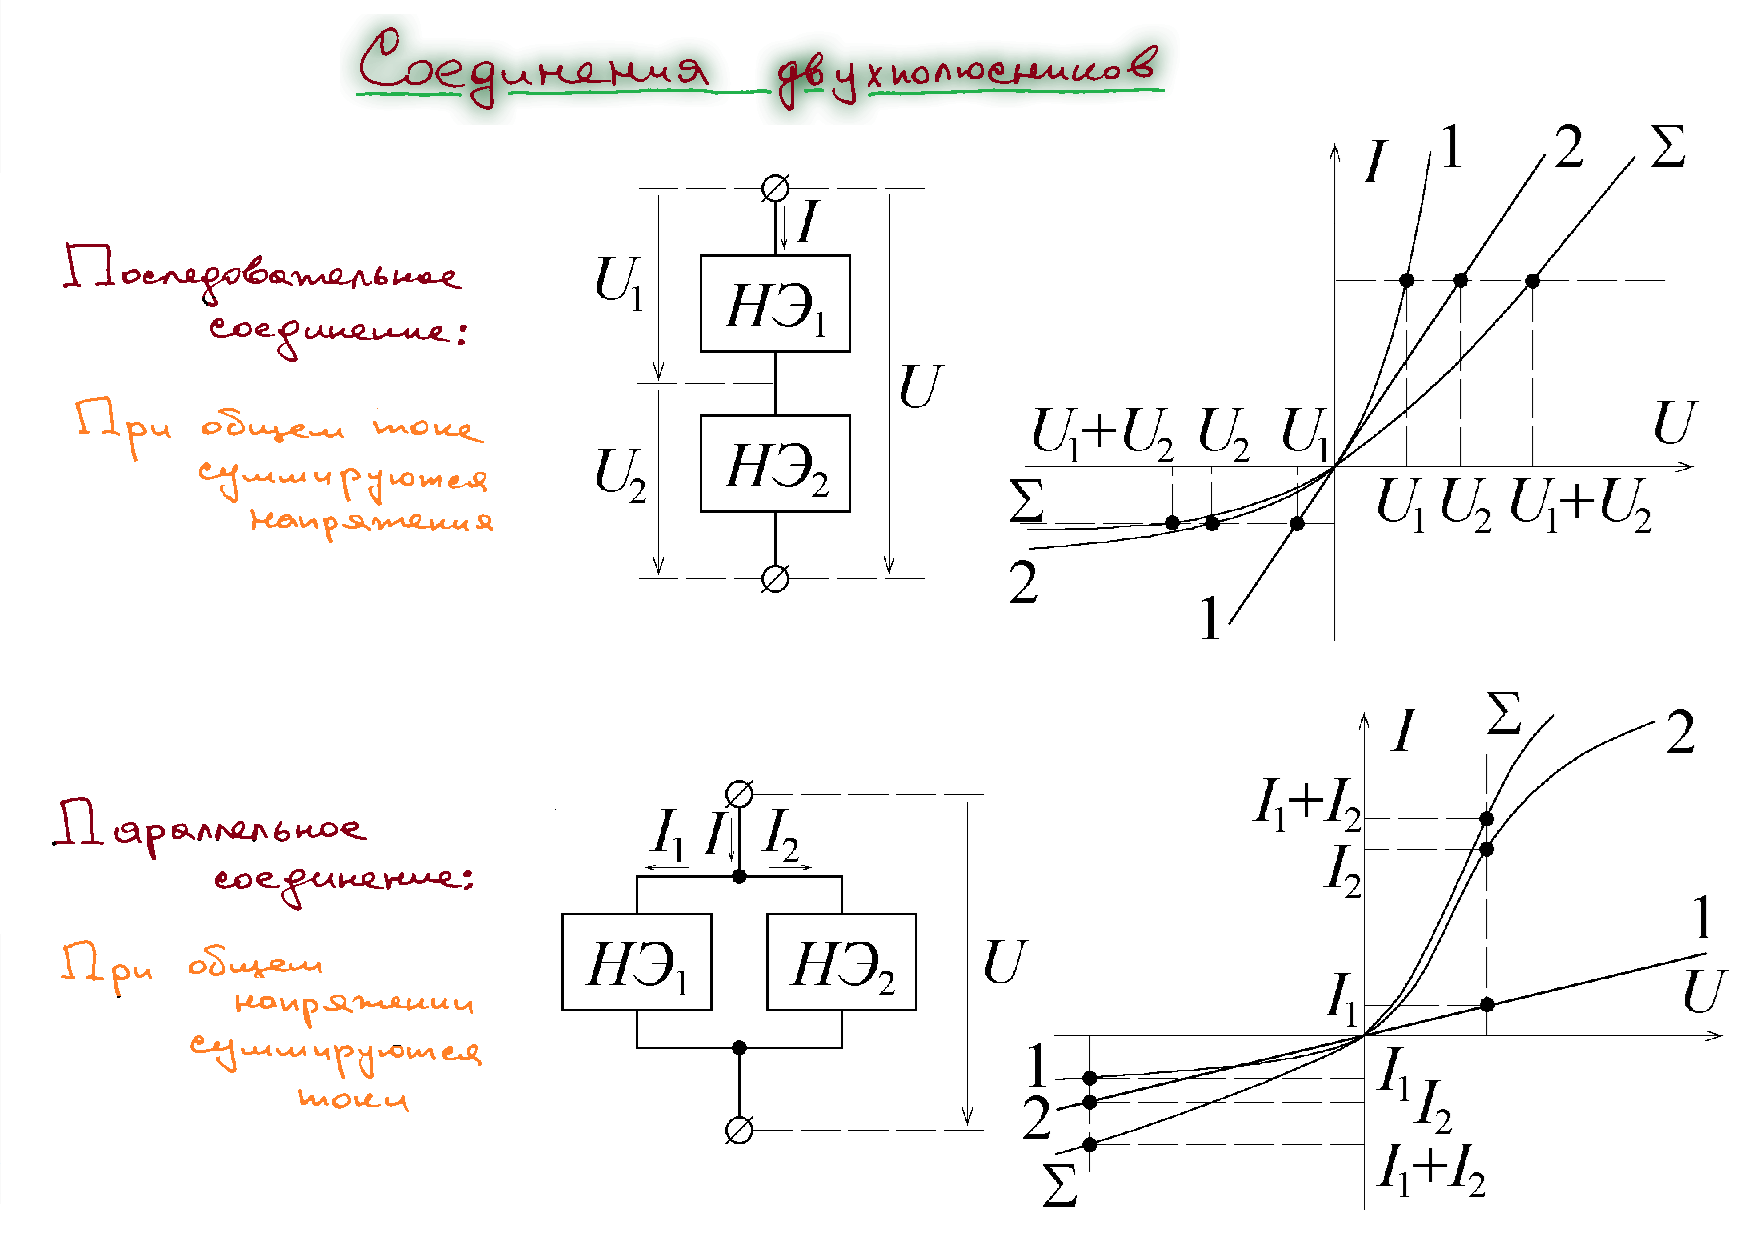 Соединения двухполюсников
Последовательное
соединение:
При общем токе
суммируются
напряжения
I
U₁
НЭ₁
U
U₂
НЭ₂
I
1
2
Σ
U₁+U₂ U₂ U₁
U
Σ
U₁ U₂ U₁+U₂
2
1
Параллельное
соединение:
При общем
напряжении
суммируются
токи
I₁ I I₂
НЭ₁
НЭ₂
U
I
Σ
2
I₁+I₂
I₂
1
I₁
U
1
I₁
2
I₂
Σ
I₁+I₂